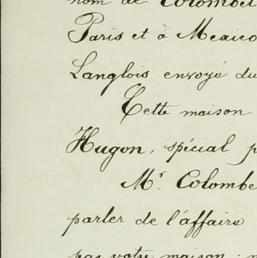 nom de Colombel
Paris et à Mexico
Langlois envoyé du
Cette maison
Hugon, spécial p
Mr. Colombe
parler de l'affaire
pas votre maison